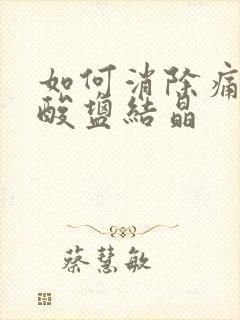 如何消除痛
酸鹽結晶
蔡慧敏